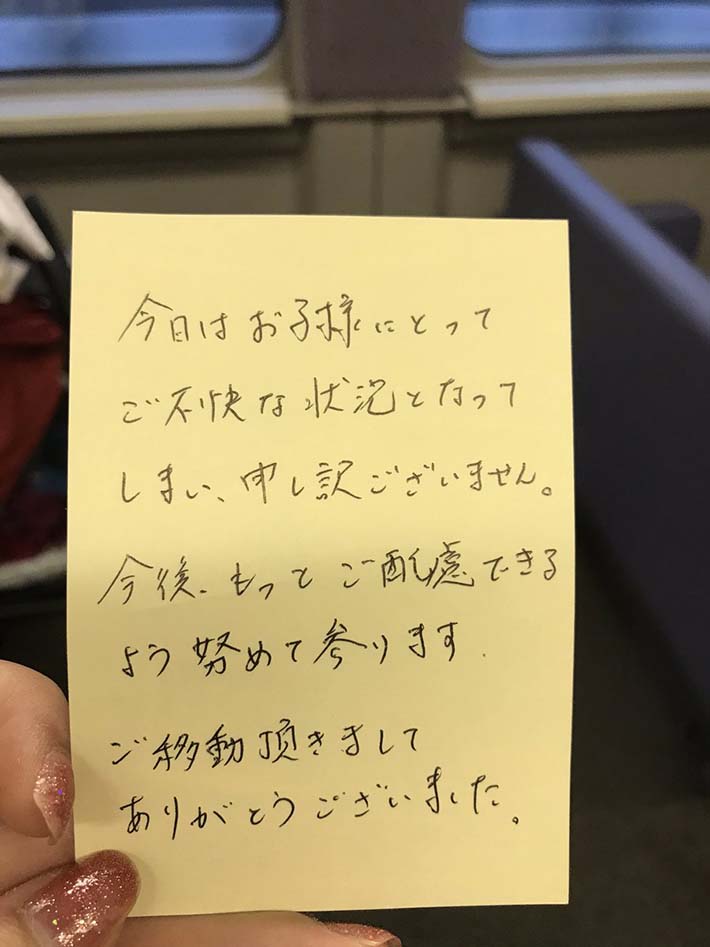 今日はお子様にとって
ご不快な状況となって
しまい、申し訳ございません。
今後、もっとご配慮できる
よう努めて参ります.
ご移動頂きまして
ありがとうございました。